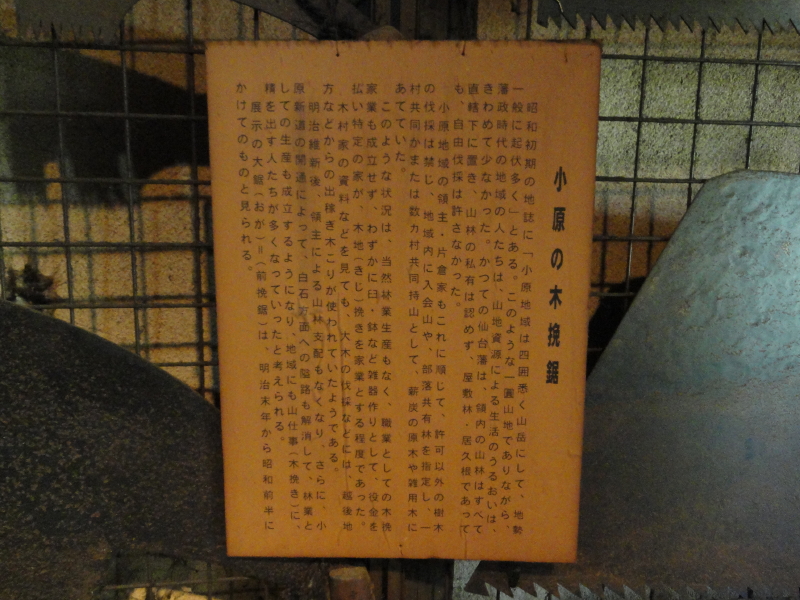 小原の木挽鋸
昭和初期の地誌に「小原地域は四囲悉く山岳にして、地勢
一般に起伏多く」とある。このような一圓山地でありながら、
藩政時代の地域の人たちは、山地資源による生活のうるおいは、
きわめて少なかった。かつての仙台藩は、領内の山林はすべて
直轄下に置き、山林の私有は認めず、屋敷林・居久根であって
も、自由伐採は許さなかった。
小原地域の領主・片倉家もこれに順じて、許可以外の樹木
の伐採は禁じ、地域内に入会山や、部落共有林を指定し、一
村共同かまたは数カ村共同持山として、薪炭の原木や雑用木に
あてていた。
このような状況は、当然林業生産もなく、職業としての木挽
家業も成立せず、わずかに臼・鉢など雑器作りとして、役金を
払い特定の家が、木地(きじ)挽きを家業とする程度であった。
木村家の資料などを見ても、大木の伐採などには、越後地
方などからの出稼ぎ木こりが使われていたようである。
明治維新後、領主による山林支配もなくなり、さらに、小
原新道の開通によって、白石方面への隘路も解消して、林業と
しての生産も成立するようになり、地域にも山仕事(木挽き)に、
精を出す人たちが多くなっていったと考えられる。
展示の大鋸(おが)=(前挽鋸)は、明治末年から昭和前半に
かけてのものと見られる。